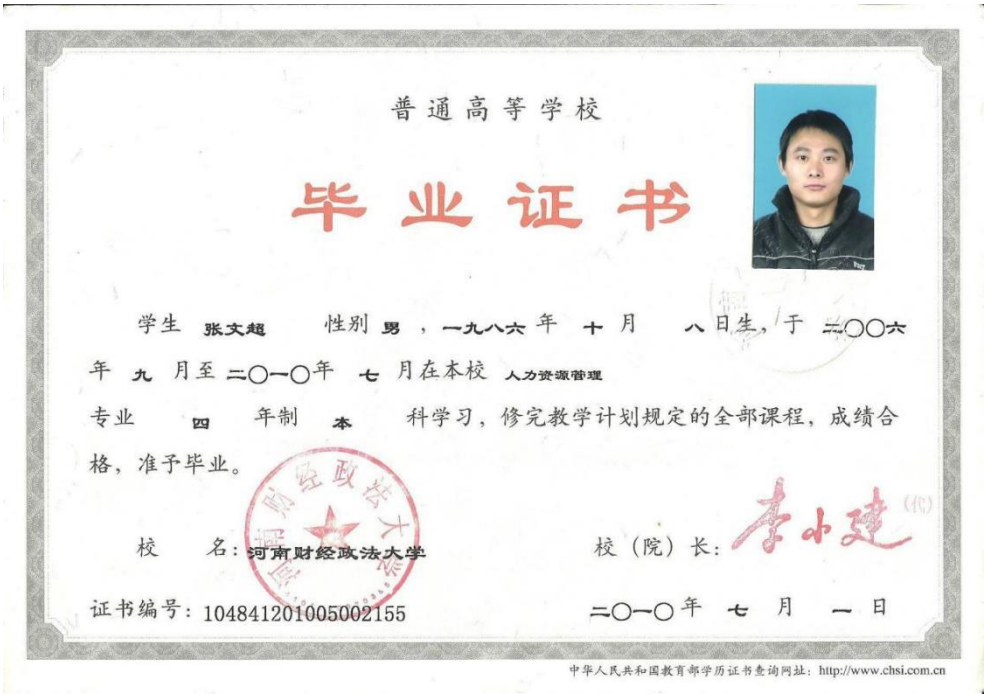 普通高等学校
毕业证书
学生 张文超 性别 男 ，一九八六 年 十 月 八 日生，于 二〇〇六
年 九 月至 二〇一〇年 七 月在本校 人力资源管理
专业 四 年制 本 科学习，修完教学计划规定的全部课程，成绩合
格，准予毕业。
河南财经政法大学
校 名：河南财经政法大学
校（院）长：李小建（代）
证书编号：104841201005002155
二〇一〇年 七 月 一 日
中华人民共和国教育部学历证书查询网址：http://www.chsi.com.cn